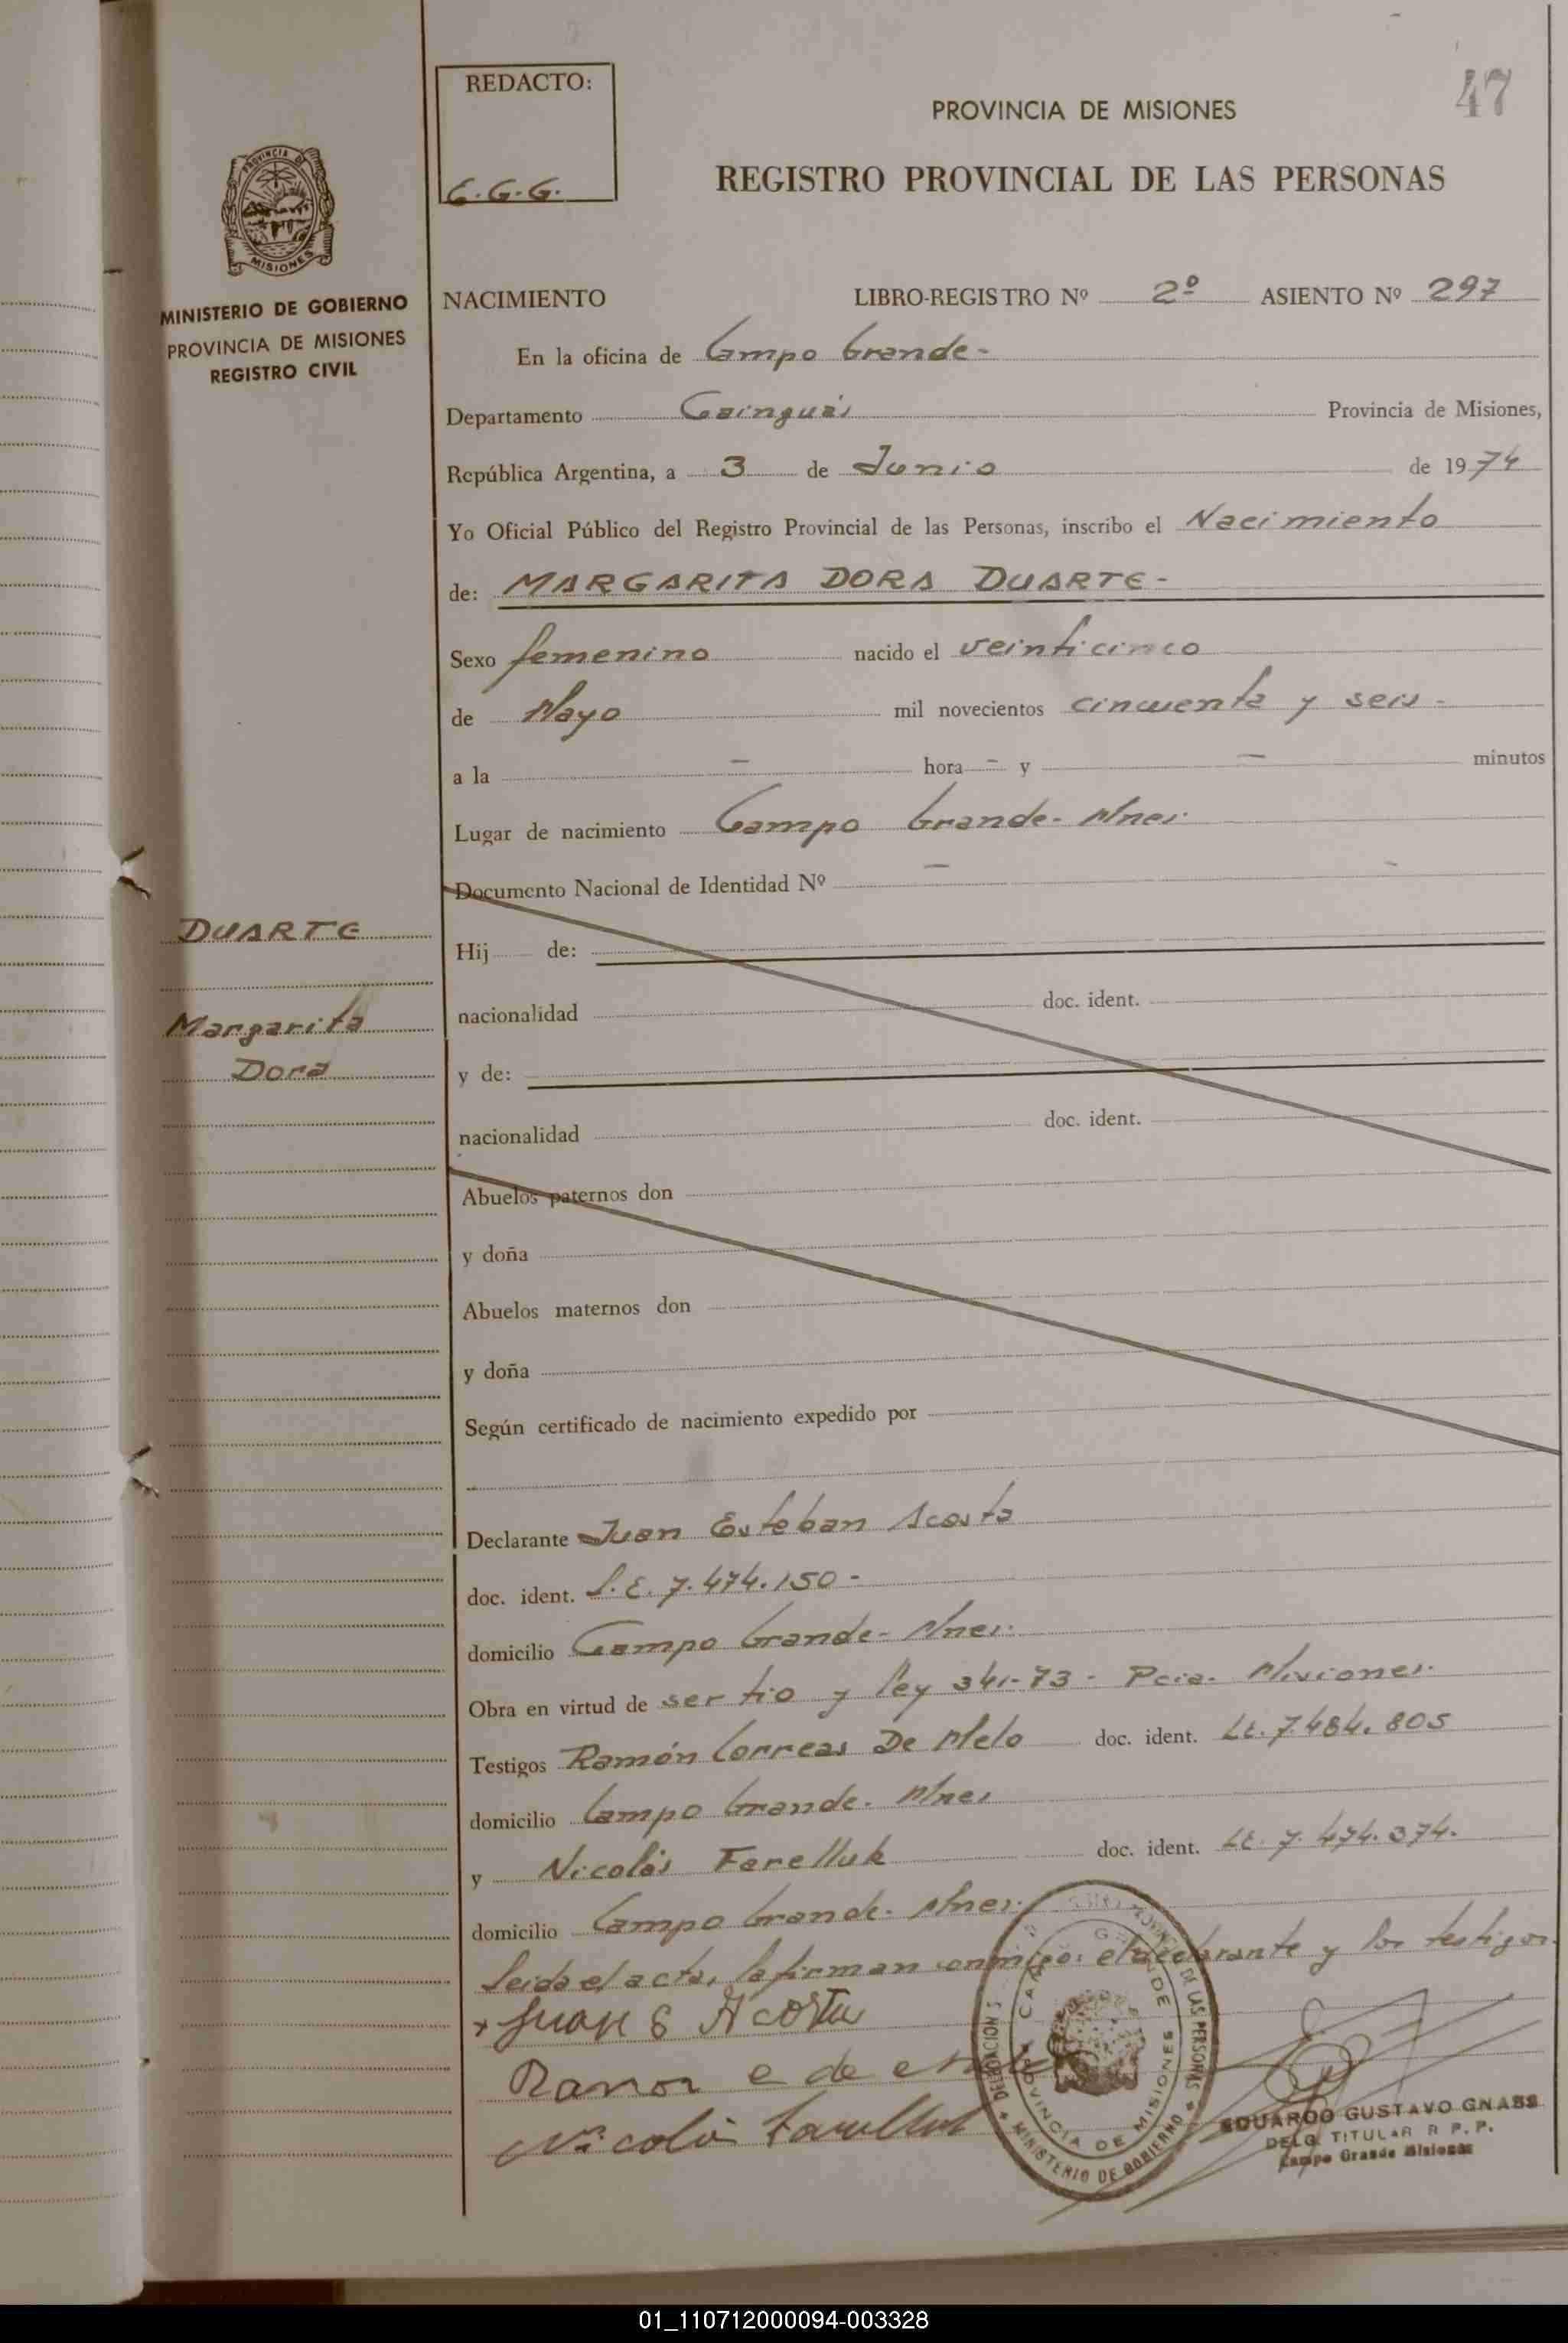 47
REDACTO:
G.G.G.
PROVINCIA DE MISIONES
REGISTRO PROVINCIAL DE LAS PERSONAS
PROVINCIA DE
MISIONES
MINISTERIO DE GOBIERNO
PROVINCIA DE MISIONES
REGISTRO CIVIL
NACIMIENTO LIBRO-REGISTRO Nº 2º ASIENTO Nº 297
En la oficina de Campo Grande-
Departamento Cainguás Provincia de Misiones,
República Argentina, a 3 de Junio de 1974
Yo Oficial Público del Registro Provincial de las Personas, inscribo el Nacimiento
de: MARGARITA DORA DUARTE-
Sexo femenino nacido el veinticinco
de Mayo mil novecientos cincuenta y seis-
a la - hora - y - minutos
Lugar de nacimiento Campo Grande- Mnes.
Documento Nacional de Identidad Nº -
DUARTE
Margarita
Dora
Hij de:
nacionalidad doc. ident.
y de:
nacionalidad doc. ident.
Abuelos paternos don
y doña
Abuelos maternos don
y doña
Según certificado de nacimiento expedido por
Declarante Juan Esteban Acosta
doc. ident. L.E. 7.474.150-
domicilio Campo Grande- Mnes.
Obra en virtud de ser tio y ley 341-73- Pcia. Misiones.
Testigos Ramón Correas De Melo doc. ident. LE. 7.484.805
domicilio Campo Grande. Mnes
y Nicolás Farelluk doc. ident. LE. 7.474.374.
domicilio Campo Grande. Mnes.
Leida el acta, la firman conmigo: el declarante y los testigos.
Juan E Acosta
Ramon e de
Nicolás
DELEGACION
DE LAS PERSONAS
MINISTERIO DE GOBIERNO
PROVINCIA DE MISIONES
EDUARDO GUSTAVO GNASS
DELG. TITULAR R P. P.
Campo Grande Misiones
01_110712000094-003328